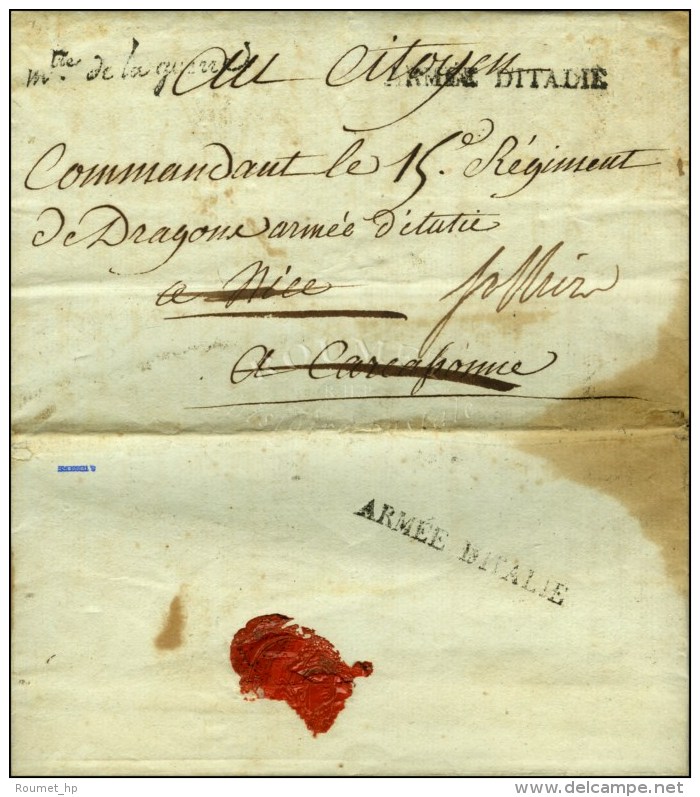 mtre de la guerre
au Citoyen
ARMÉE DITALIE
Commandant le 15e. Régiment
de Dragons armée d'italie
a Nice
a Carcassonne
ARMÉE DITALIE
Roumet_hp
www.delcampe.net